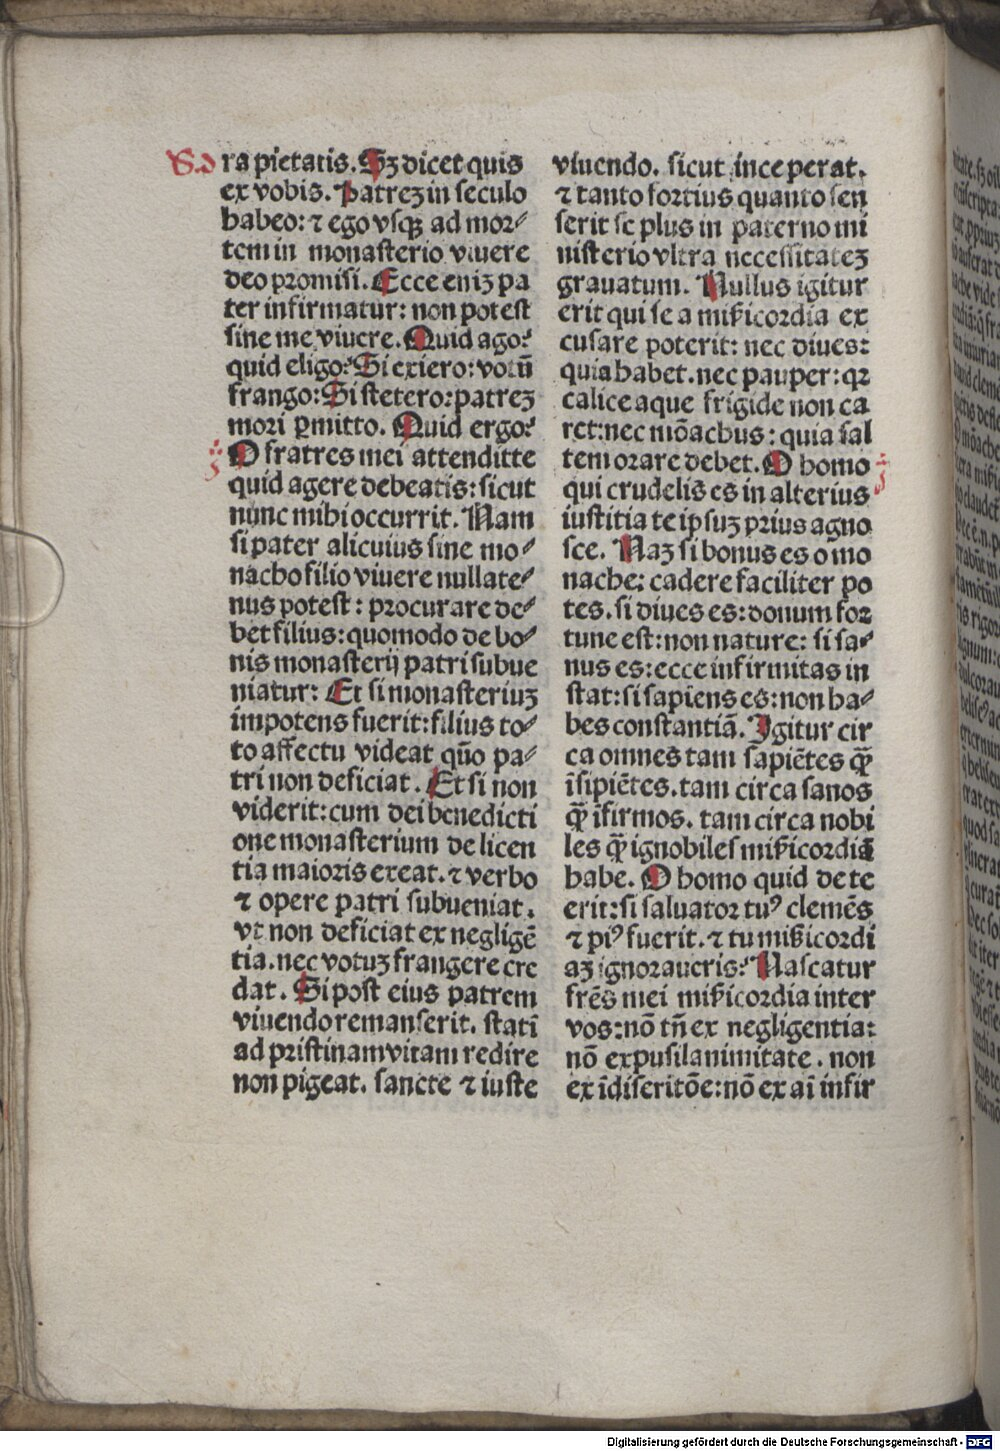 ra pietatis. Sꝫ dicet quis
ex vobis. Patreꝫ in seculo
habeo: ⁊ ego vsqꝫ ad mor⸗
tem in monasterio viuere
deo promisi. Ecce eniꝫ pa
ter infirmatur: non potest
sine me viuere. Quid ago?
quid eligo? Si exiero: votū
frango: Si stetero: patreꝫ
mori ꝑmitto. Quid ergo?
O fratres mei attenditte
quid agere debeatis: sicut
nunc mihi occurrit. Nam
si pater alicuius sine mo⸗
nacho filio viuere nullate⸗
nus potest: procurare de⸗
bet filius: quomodo de bo⸗
nis monasterij patri subue
niatur: Et si monasteriuꝫ
impotens fuerit: filius to⸗
to affectu videat qūo pa⸗
tri non deficiat. Et si non
viderit: cum dei benedicti
one monasterium de licen
tia maioris exeat. ⁊ verbo
⁊ opere patri subueniat.
vt non deficiat ex negligē
tia. nec votuꝫ frangere cre
dat. Si post eius patrem
viuendo remanserit. statī
ad pristinam vitam redire
non pigeat. sancte ⁊ iuste
viuendo. sicut inceperat.
⁊ tanto fortius quanto sen
serit se plus in paterno mi
nisterio vltra necessitateꝫ
grauatum. Nullus igitur
erit qui se a mīsicordia ex
cusare poterit: nec diues:
quia habet. nec pauper: qꝛ
calice aque frigide non ca
ret: nec mōachus: quia sal
tem orare debet. O homo
qui crudelis es in alterius
iustitia te ipsuꝫ prius agno
sce. Naꝫ si bonus es o mo
nache: cadere faciliter po
tes. si diues es: donum for
tune est: non nature: si sa⸗
nus es: ecce infirmitas in
stat: si sapiens es: non ha⸗
bes constantiā. Igitur cir
ca omnes tam sapiētes qꝫ̄
īsipiētes. tam circa sanos
qꝫ̄ īfirmos. tam circa nobi
les qꝫ̄ ignobiles mīsicordiā
habe. O homo quid dete
erit: si saluator tuꝰ clemēs
⁊ piꝰ fuerit. ⁊ tu mīsicordi
aꝫ ignoraueris? Nascatur
frēs mei mīsicordia inter
vos: nō tn̄ ex negligentia:
nō ex pusilanimitate. non
ex īdiseritōe: nō ex aī infir
Digitalisierung gefördert durch die Deutsche Forschungsgemeinschaft - DFG